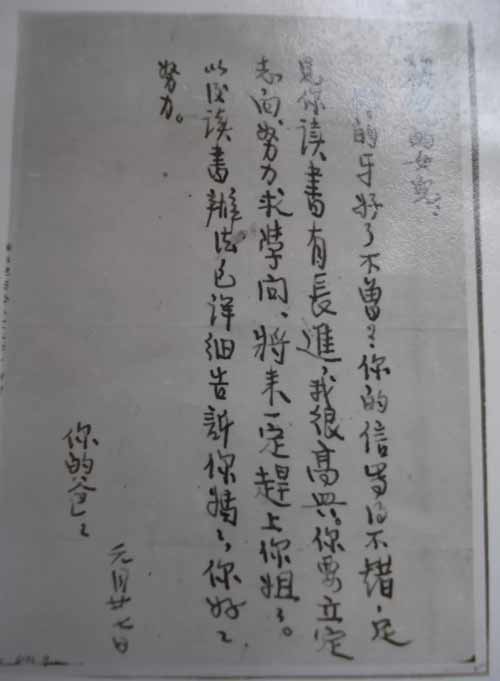 的女兒:
的牙好了不曾?你的信写得不錯,足
見你读書有長進,我很高興。你要立定
志向,努力求學问,将来一定趕上你姐々。
以後读書辦法已详细告訴你媽々,你好々
努力。
你的爸々
元月廿七日